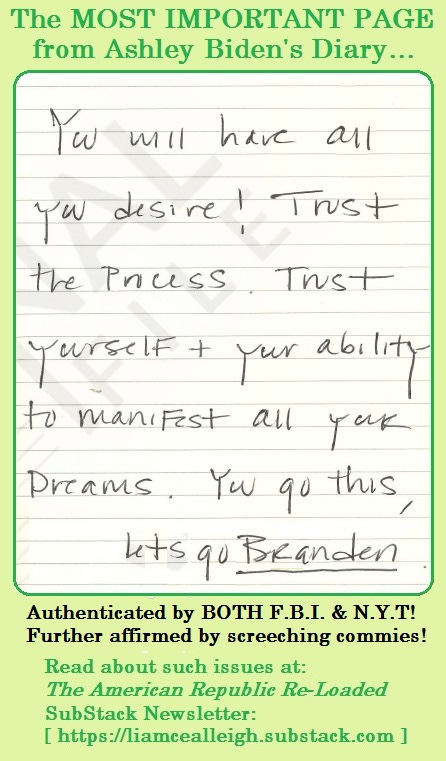 The MOST IMPORTANT PAGE
from Ashley Biden's Diary...
You will have all
you desire! Trust
the Process. Trust
yourself + your ability
to manifest all your
Dreams. You go this,
lets go Branden
Authenticated by BOTH F.B.I. & N.Y.T!
Further affirmed by screeching commies!
Read about such issues at:
The American Republic Re-Loaded
SubStack Newsletter:
[ https://liamcealleigh.substack.com ]